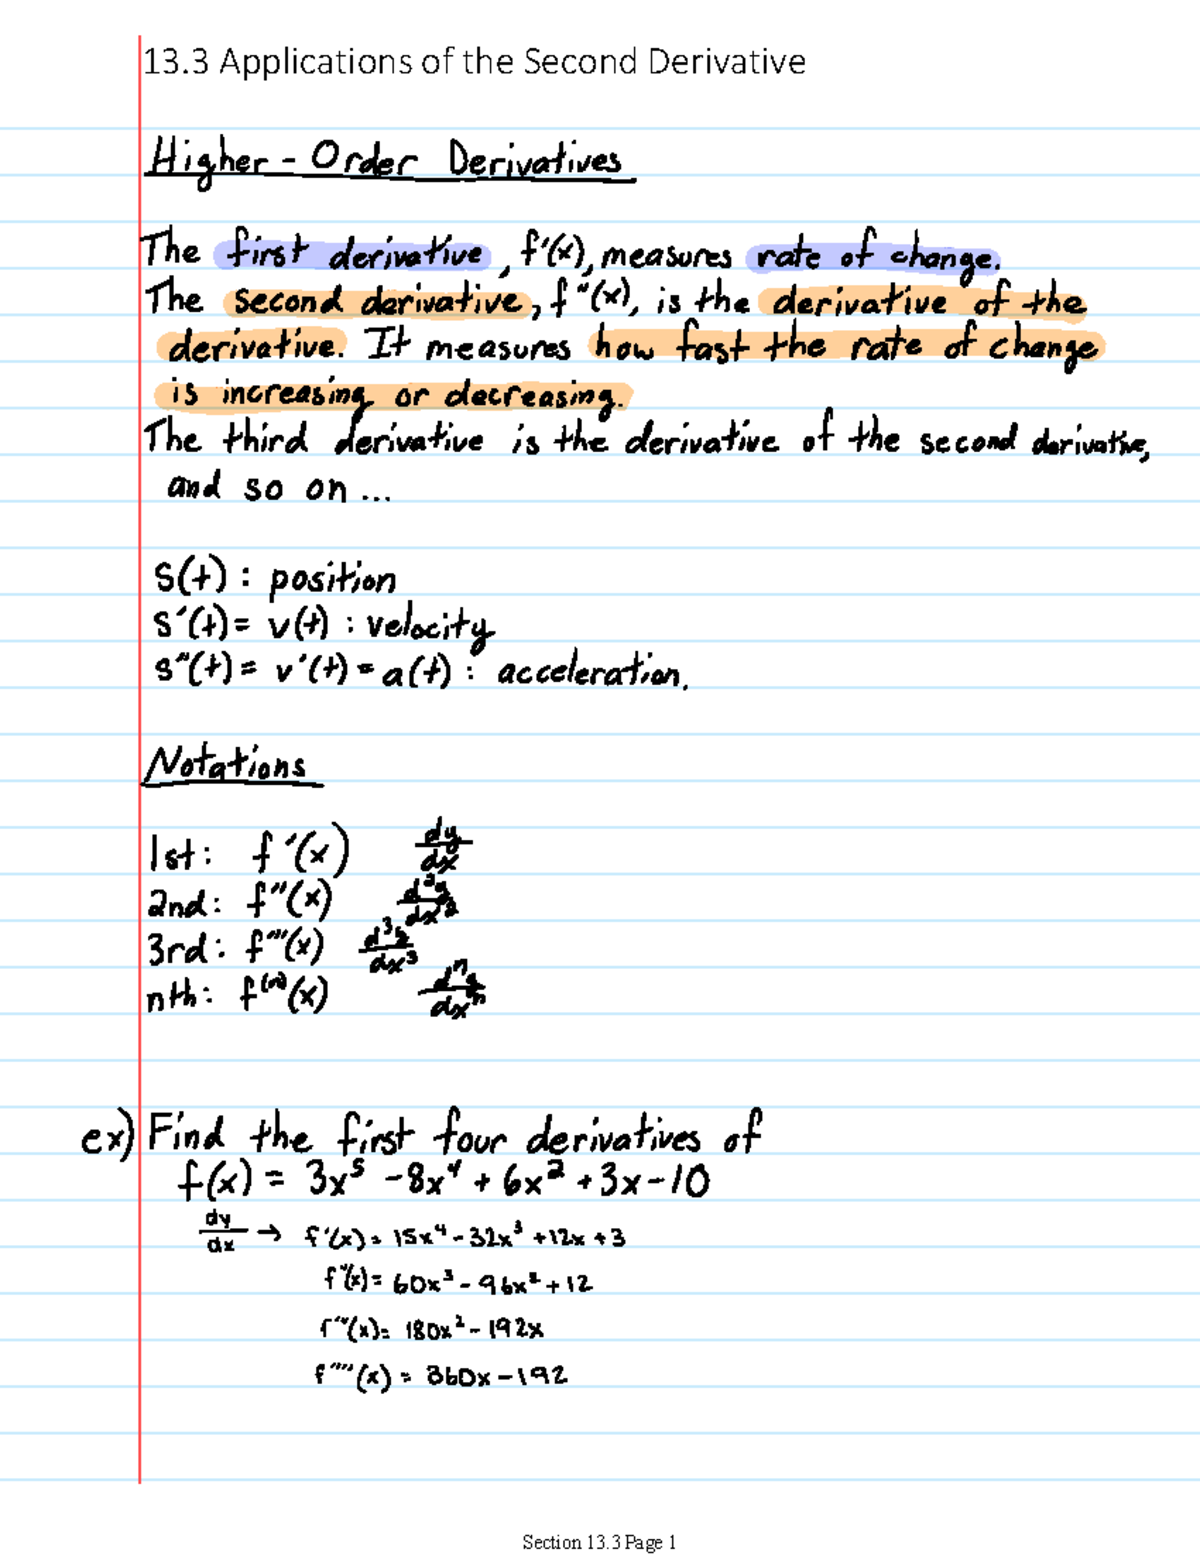 13.3 Applications of the Second Derivative
Higher - Order Derivatives
The first derivative, f′(x), measures rate of change.
The second derivative, f″(x), is the derivative of the
derivative. It measures how fast the rate of change
is increasing or decreasing.
The third derivative is the derivative of the second derivative,
and so on ...
s(t) : position
s′(t) = v(t) : velocity
s″(t) = v′(t) = a(t) : acceleration.
Notations
1st: f′(x) dy/dx
2nd: f″(x) d²y/dx²
3rd: f‴(x) d³y/dx³
nth: f⁽ⁿ⁾(x) dⁿy/dxⁿ
ex) Find the first four derivatives of
f(x) = 3x⁵ - 8x⁴ + 6x² + 3x - 10
dy/dx → f′(x) = 15x⁴ - 32x³ + 12x + 3
f″(x) = 60x³ - 96x² + 12
f‴(x) = 180x² - 192x
f⁗(x) = 360x - 192
Section 13.3 Page 1